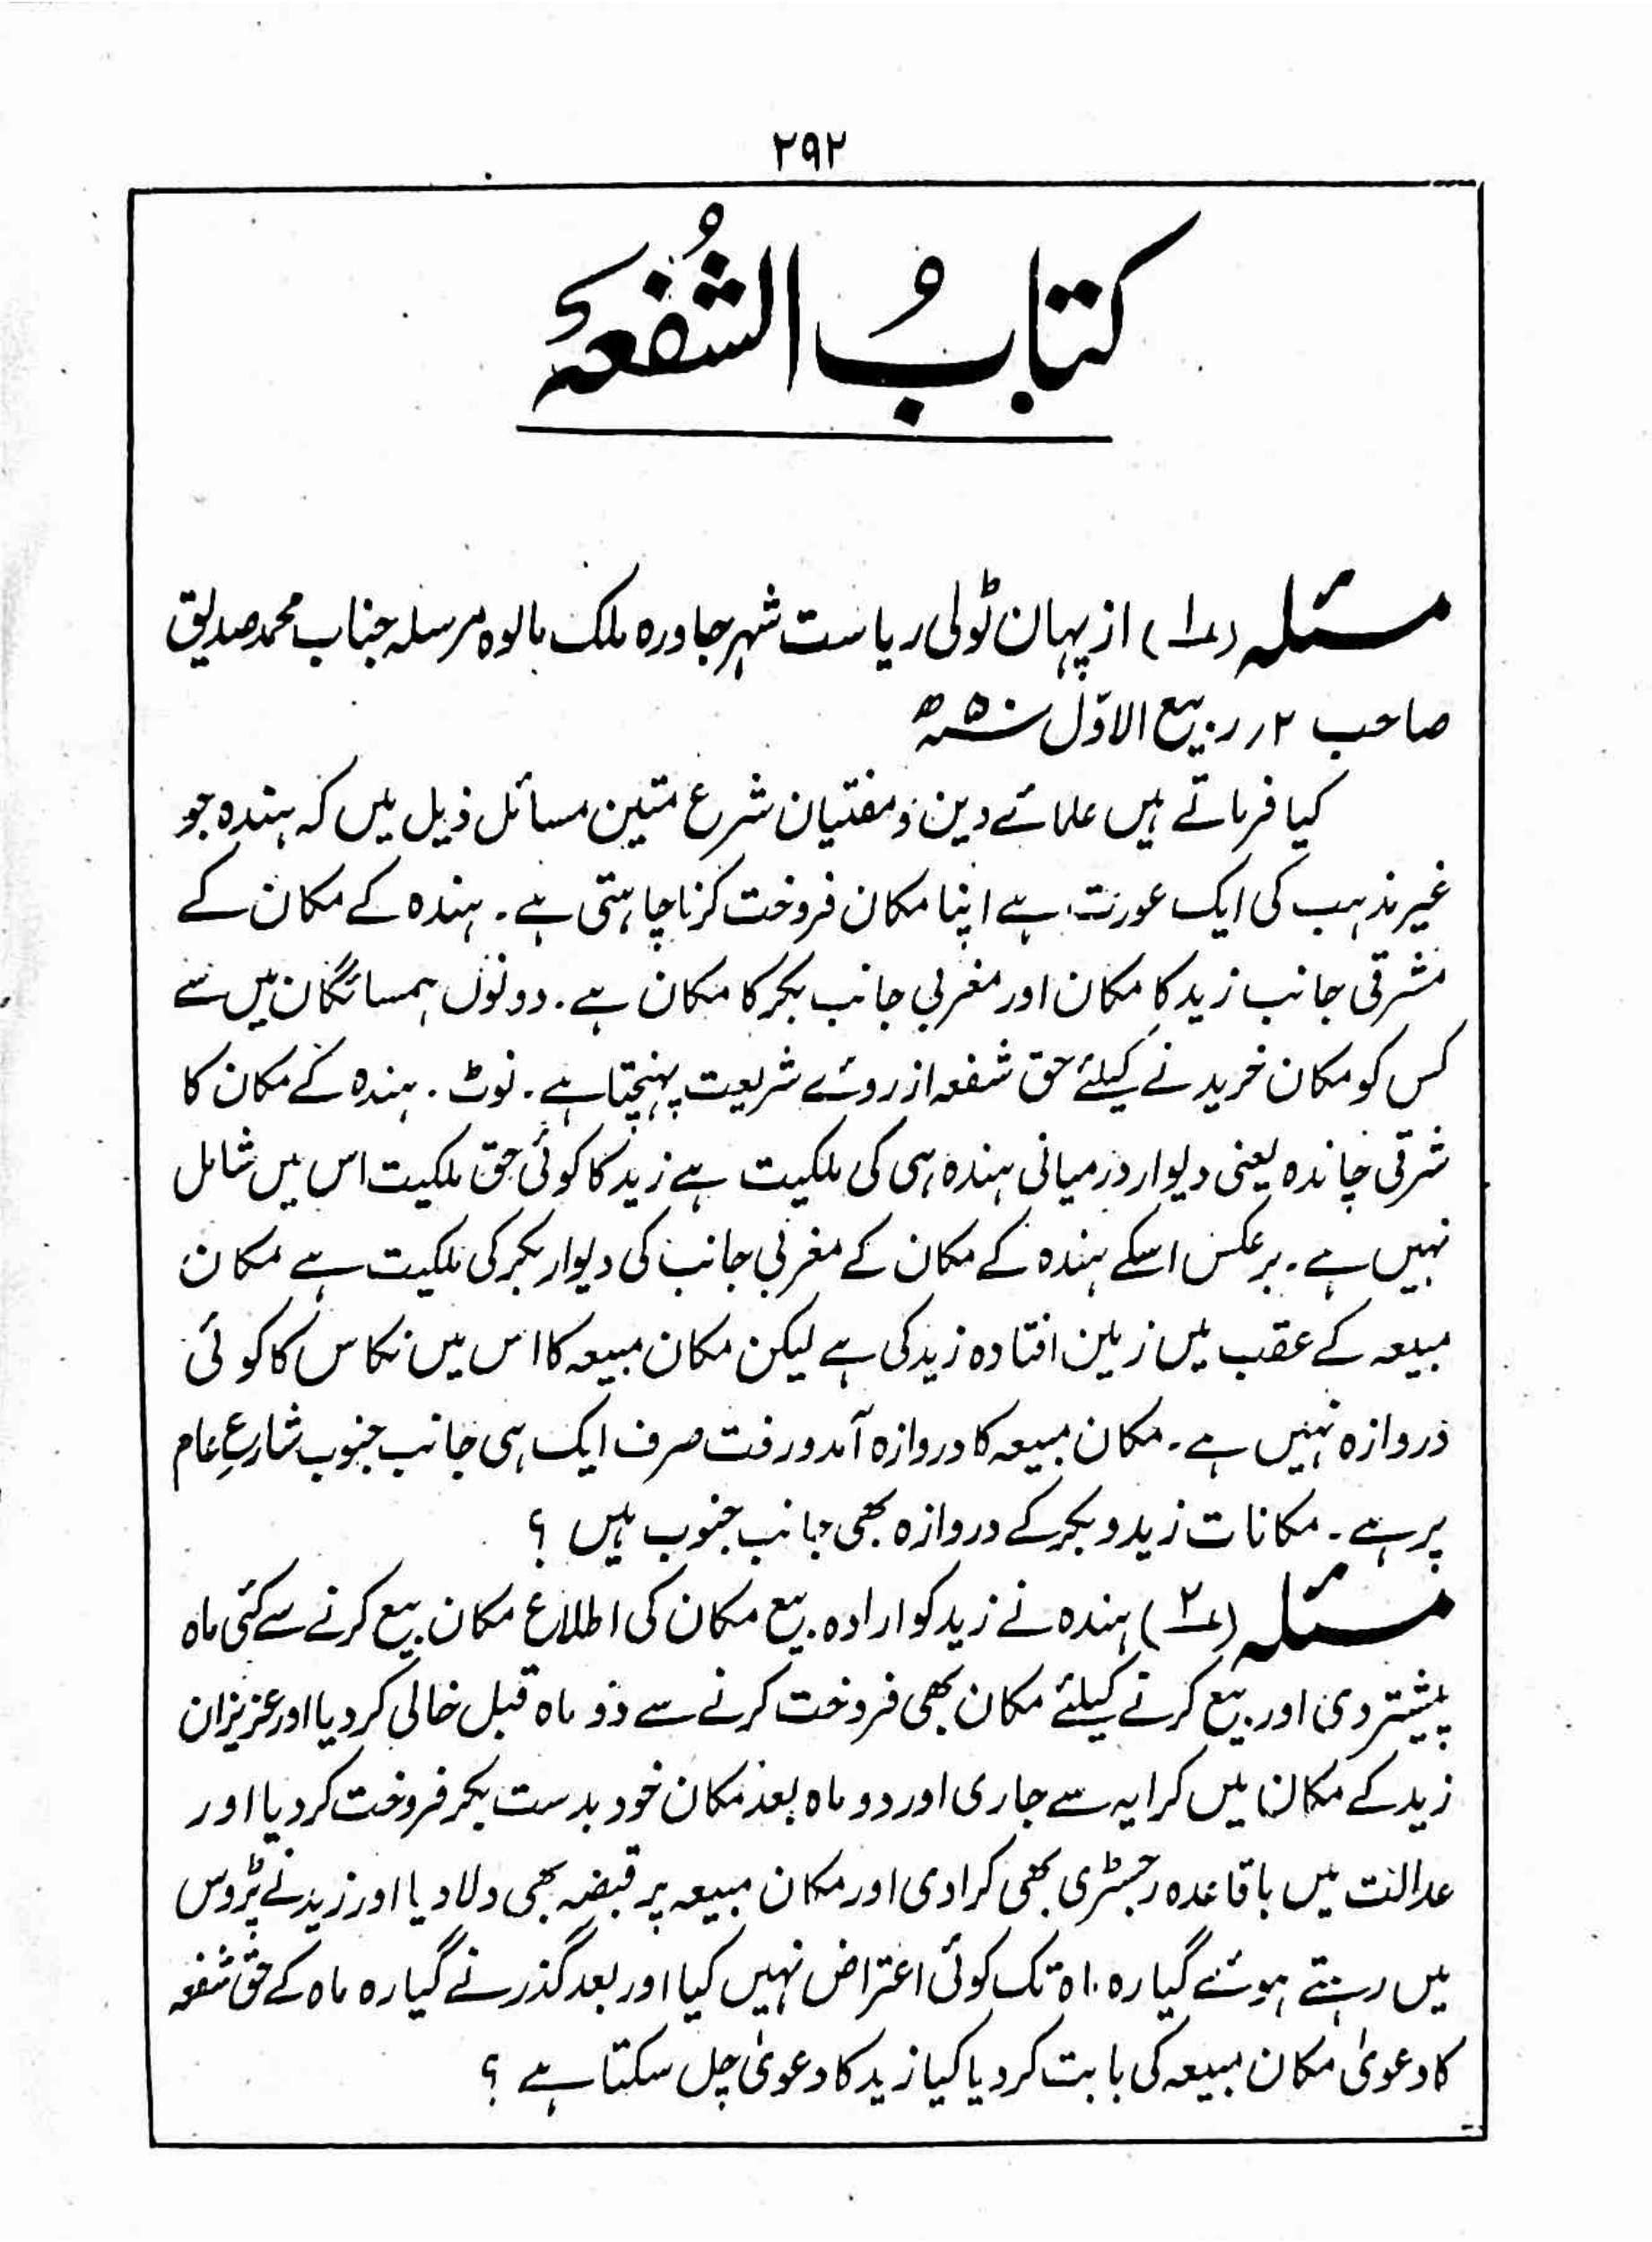 ۲۹۲
کتابُ الشُفعہ
مسئلہ (۱) از پہان ٹولی ریاست شہر جاورہ ملک مالوہ مرسلہ جناب محمد صدیق
صاحب ۲؍ ربیع الاوّل ۵۰ھ
کیا فرماتے ہیں علمائے دین و مفتیان شرع متین مسائل ذیل میں کہ ہندہ جو
غیر مذہب کی ایک عورت ہے اپنا مکان فروخت کرنا چاہتی ہے۔ ہندہ کے مکان کے
مشرقی جانب زید کا مکان اور مغربی جانب بکر کا مکان ہے۔ دونوں ہمسائگان میں سے
کس کو مکان خریدنے کیلئے حق شفعہ از روئے شریعت پہنچتا ہے۔ نوٹ۔ ہندہ کے مکان کا
شرقی چاندہ یعنی دیوار درمیانی ہندہ ہی کی ملکیت ہے زید کا کوئی حق ملکیت اس میں شامل
نہیں ہے۔ برعکس اسکے ہندہ کے مکان کے مغربی جانب کی دیوار بکر کی ملکیت ہے مکان
مبیعہ کے عقب میں زمین افتادہ زید کی ہے لیکن مکان مبیعہ کا اس میں نکاس کا کوئی
دروازہ نہیں ہے۔ مکان مبیعہ کا دروازہ آمد و رفت صرف ایک ہی جانب جنوب شارعِ عام
پر ہے۔ مکانات زید و بکر کے دروازہ بھی جانب جنوب ہیں ؟
مسئلہ (۲) ہندہ نے زید کو ارادہ بیع مکان کی اطلاع مکان بیع کرنے سے کئی ماہ
پیشتر دی اور بیع کرنے کیلئے مکان بھی فروخت کرنے سے دو ماہ قبل خالی کر دیا اور عزیزان
زید کے مکان میں کرایہ سے جا رہی اور دو ماہ بعد مکان خود بدست بکر فروخت کر دیا اور
عدالت میں باقاعدہ رجسٹری بھی کرا دی اور مکان مبیعہ پر قبضہ بھی دلا دیا اور زید نے پڑوس
میں رہتے ہوئے گیارہ ماہ تک کوئی اعتراض نہیں کیا اور بعد گذرنے گیارہ ماہ کے حق شفعہ
کا دعویٰ مکان مبیعہ کی بابت کر دیا کیا زید کا دعویٰ چل سکتا ہے ؟